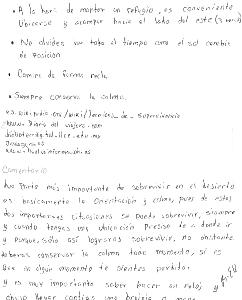 • A la hora de montar un refugio, es conveniente
ubicarse y acampar hacia el lado del este
• No olvides ver todo el tiempo como el sol cambia
de posición
• Camina de forma recta
• Siempre conserva la calma.
es.wikipedia.org/wiki/Técnicas_de_supervivencia
www.Diario del viajero.com
Comentario
La parte más importante de sobrevivir en el desierto
es básicamente la Orientación y calma, pues de estas
dos importantes situaciones se puede sobrevivir, siempre
y cuando tengas una ubicación precisa de a donde ir
y porque, sólo así lograras sobrevivir, no obstante
deberas conservar la calma todo momento, si es
que en algún momento te sientes perdido
y es muy importante saber hacer un reloj, y
llevar contigo una brujula o mapa